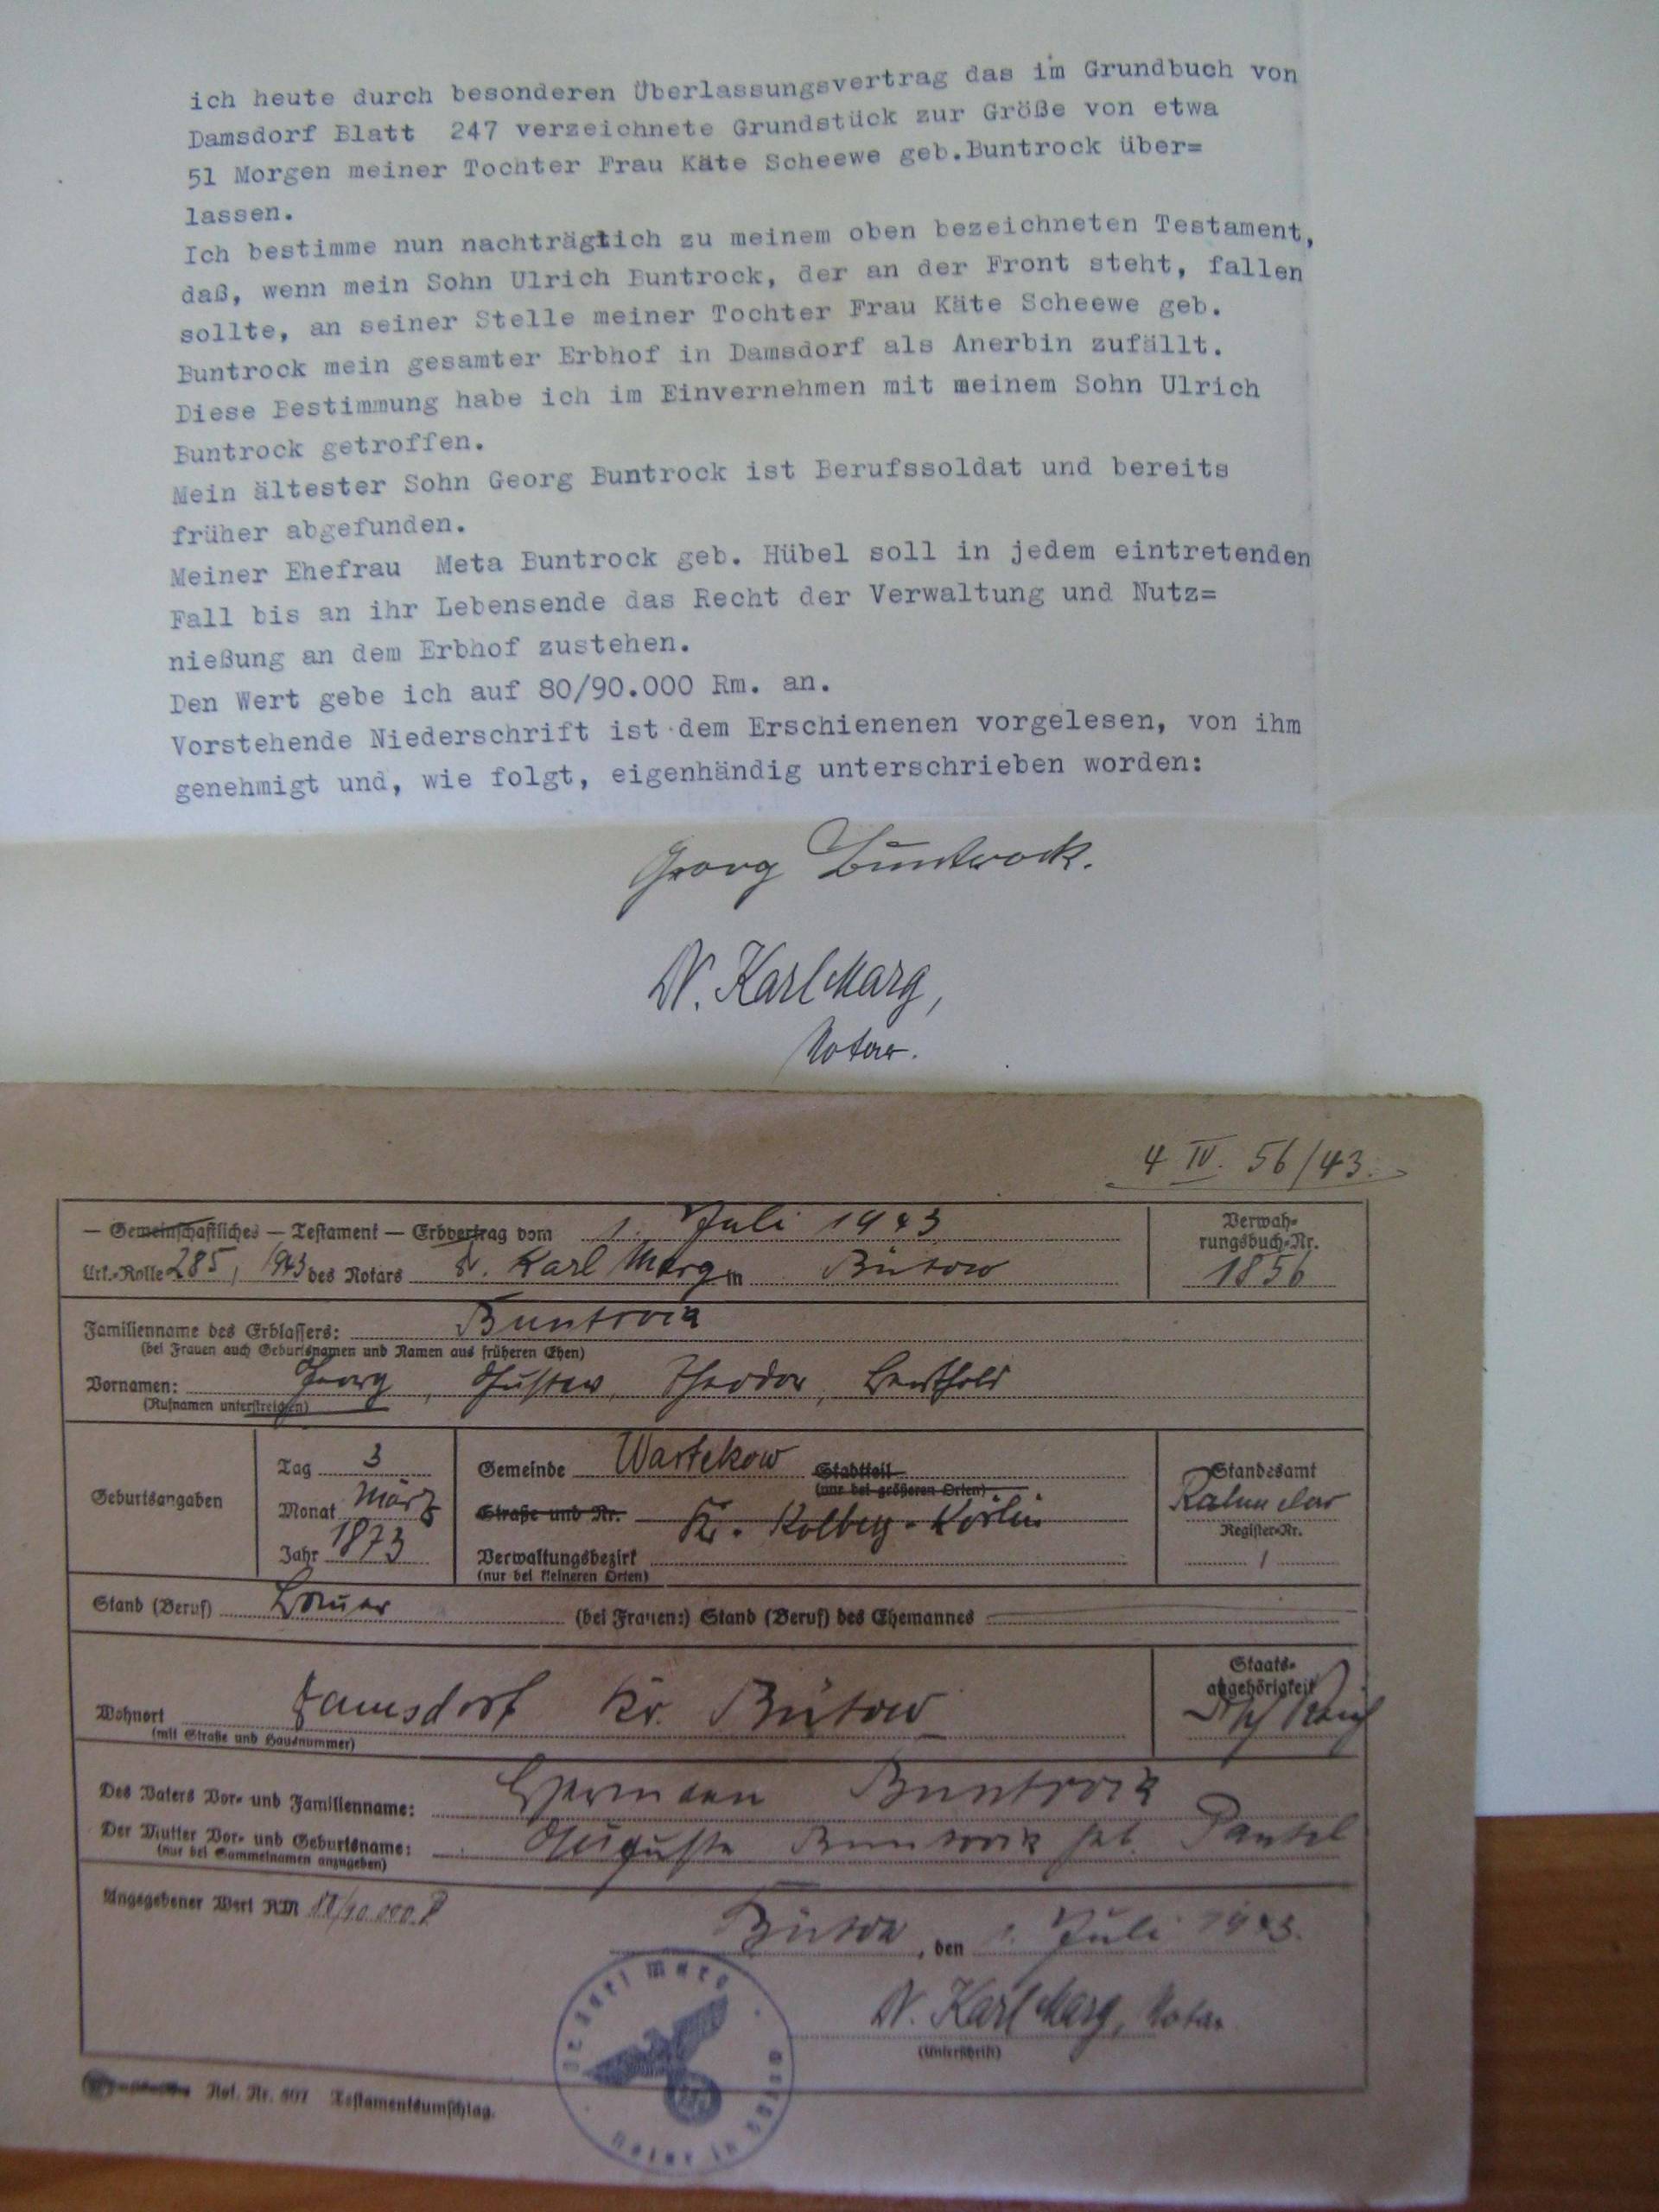 ich heute durch besonderen Überlassungsvertrag das im Grundbuch von
Damsdorf Blatt 247 verzeichnete Grundstück zur Größe von etwa
51 Morgen meiner Tochter Frau Käte Scheewe geb.Buntrock über=
lassen.
Ich bestimme nun nachträgtich zu meinem oben bezeichneten Testament,
daß, wenn mein Sohn Ulrich Buntrock, der an der Front steht, fallen
sollte, an seiner Stelle meiner Tochter Frau Käte Scheewe geb.
Buntrock mein gesamter Erbhof in Damsdorf als Anerbin zufällt.
Diese Bestimmung habe ich im Einvernehmen mit meinem Sohn Ulrich
Buntrock getroffen.
Mein ältester Sohn Georg Buntrock ist Berufssoldat und bereits
früher abgefunden.
Meiner Ehefrau Meta Buntrock geb. Hübel soll in jedem eintretenden
Fall bis an ihr Lebensende das Recht der Verwaltung und Nutz=
nießung an dem Erbhof zustehen.
Den Wert gebe ich auf 80/90.000 Rm. an.
Vorstehende Niederschrift ist dem Erschienenen vorgelesen, von ihm
genehmigt und, wie folgt, eigenhändig unterschrieben worden:
Georg Buntrock.
Dr. Karl Marg,
Notar.
4 IV. 56/43.
— Gemeinschaftliches — Testament — Erbvertrag vom 1. Juli 1943
Urk.-Rolle 285, 1943 des Notars Dr. Karl Marg in Bütow
Verwah-
rungsbuch-Nr.
1856
Familienname des Erblassers: Buntrock
(bei Frauen auch Geburtsnamen und Namen aus früheren Ehen)
Vornamen: Georg, Gustav, Theodor, Berthold
(Rufnamen unterstreichen)
Geburtsangaben
Tag 3
Monat März
Jahr 1873
Gemeinde Wartekow Stadtteil
(nur bei größeren Orten)
Straße und Nr. Kr. Kolberg-Körlin
Verwaltungsbezirk
(nur bei kleineren Orten)
Standesamt
Register-Nr.
Stand (Beruf) Bauer (bei Frauen:) Stand (Beruf) des Ehemannes
Wohnort Damsdorf Kr. Bütow
(mit Straße und Hausnummer)
Staats-
angehörigkeit
Des Vaters Vor- und Familienname: Hermann Buntrock
Der Mutter Vor- und Geburtsname: Auguste Buntrock geb. Pantel
(nur bei Sammelnamen anzugeben)
Angegebener Wert RM 80/90.000.
Bütow, den 1. Juli 1943.
Dr. Karl Marg, Notar
(Unterschrift)
Dr. Karl Marg
Notar in Bütow
Not. Nr. 507 Testamentsumschlag.